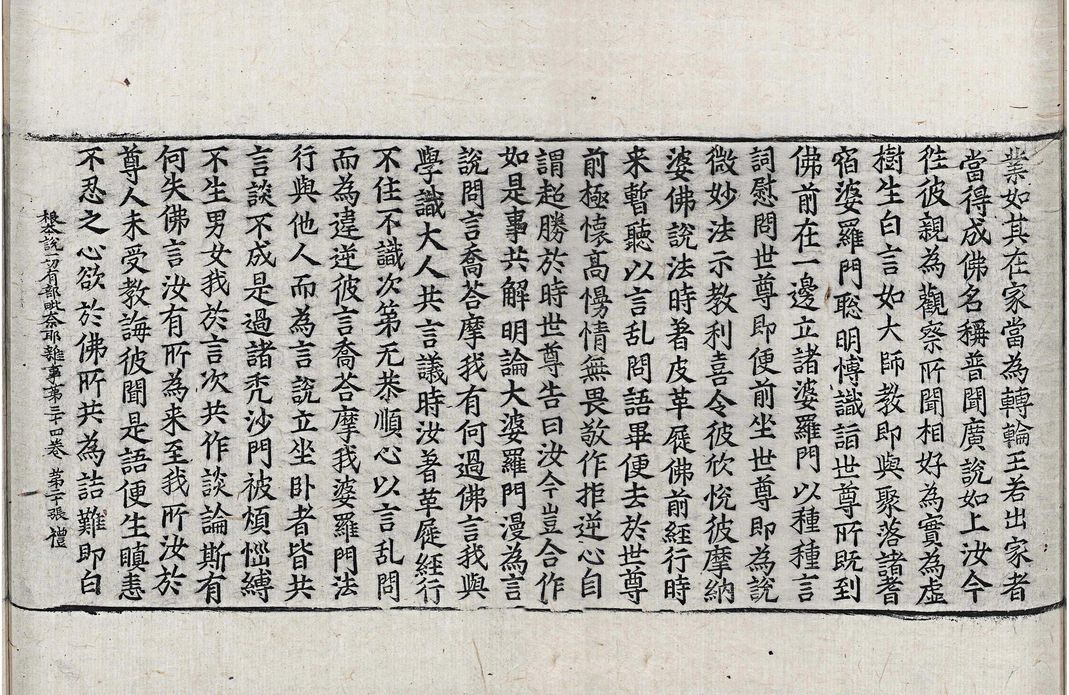 業如其在家當為轉輪王若出家者
當得成佛名稱普聞廣說如上汝今
徃彼親為觀察所聞相好為實為虛
樹生白言如大師教即與聚落諸耆
宿婆羅門聡明博識詣世尊所既到
佛前在一邊立諸婆羅門以種種言
詞慰問世尊即便前坐世尊即為說
微妙法示教利喜令彼欣悅彼摩納
婆佛說法時著皮革屣佛前經行時
来暫聽以言乱問語畢便去於世尊
前極懷髙慢情無畏敬作拒逆心自
謂超勝於時世尊告曰汝今豈合作
如是事共解明論大婆羅門漫為言
說問言喬荅摩我有何過佛言我與
學識大人共言議時汝著革屣經行
不住不識次第无恭順心以言乱問
而為違逆彼言喬荅摩我婆羅門法
行與他人而為言說立坐卧者皆共
言談不成是過諸禿沙門被煩惱縛
不生男女我於言次共作談論斯有
何失佛言汝有所為来至我所汝於
尊人未受教誨彼聞是語便生瞋恚
不忍之心欲於佛所共為詰難即白
根本說一切有部毗奈耶雜事第三十四卷 第二十張 禮